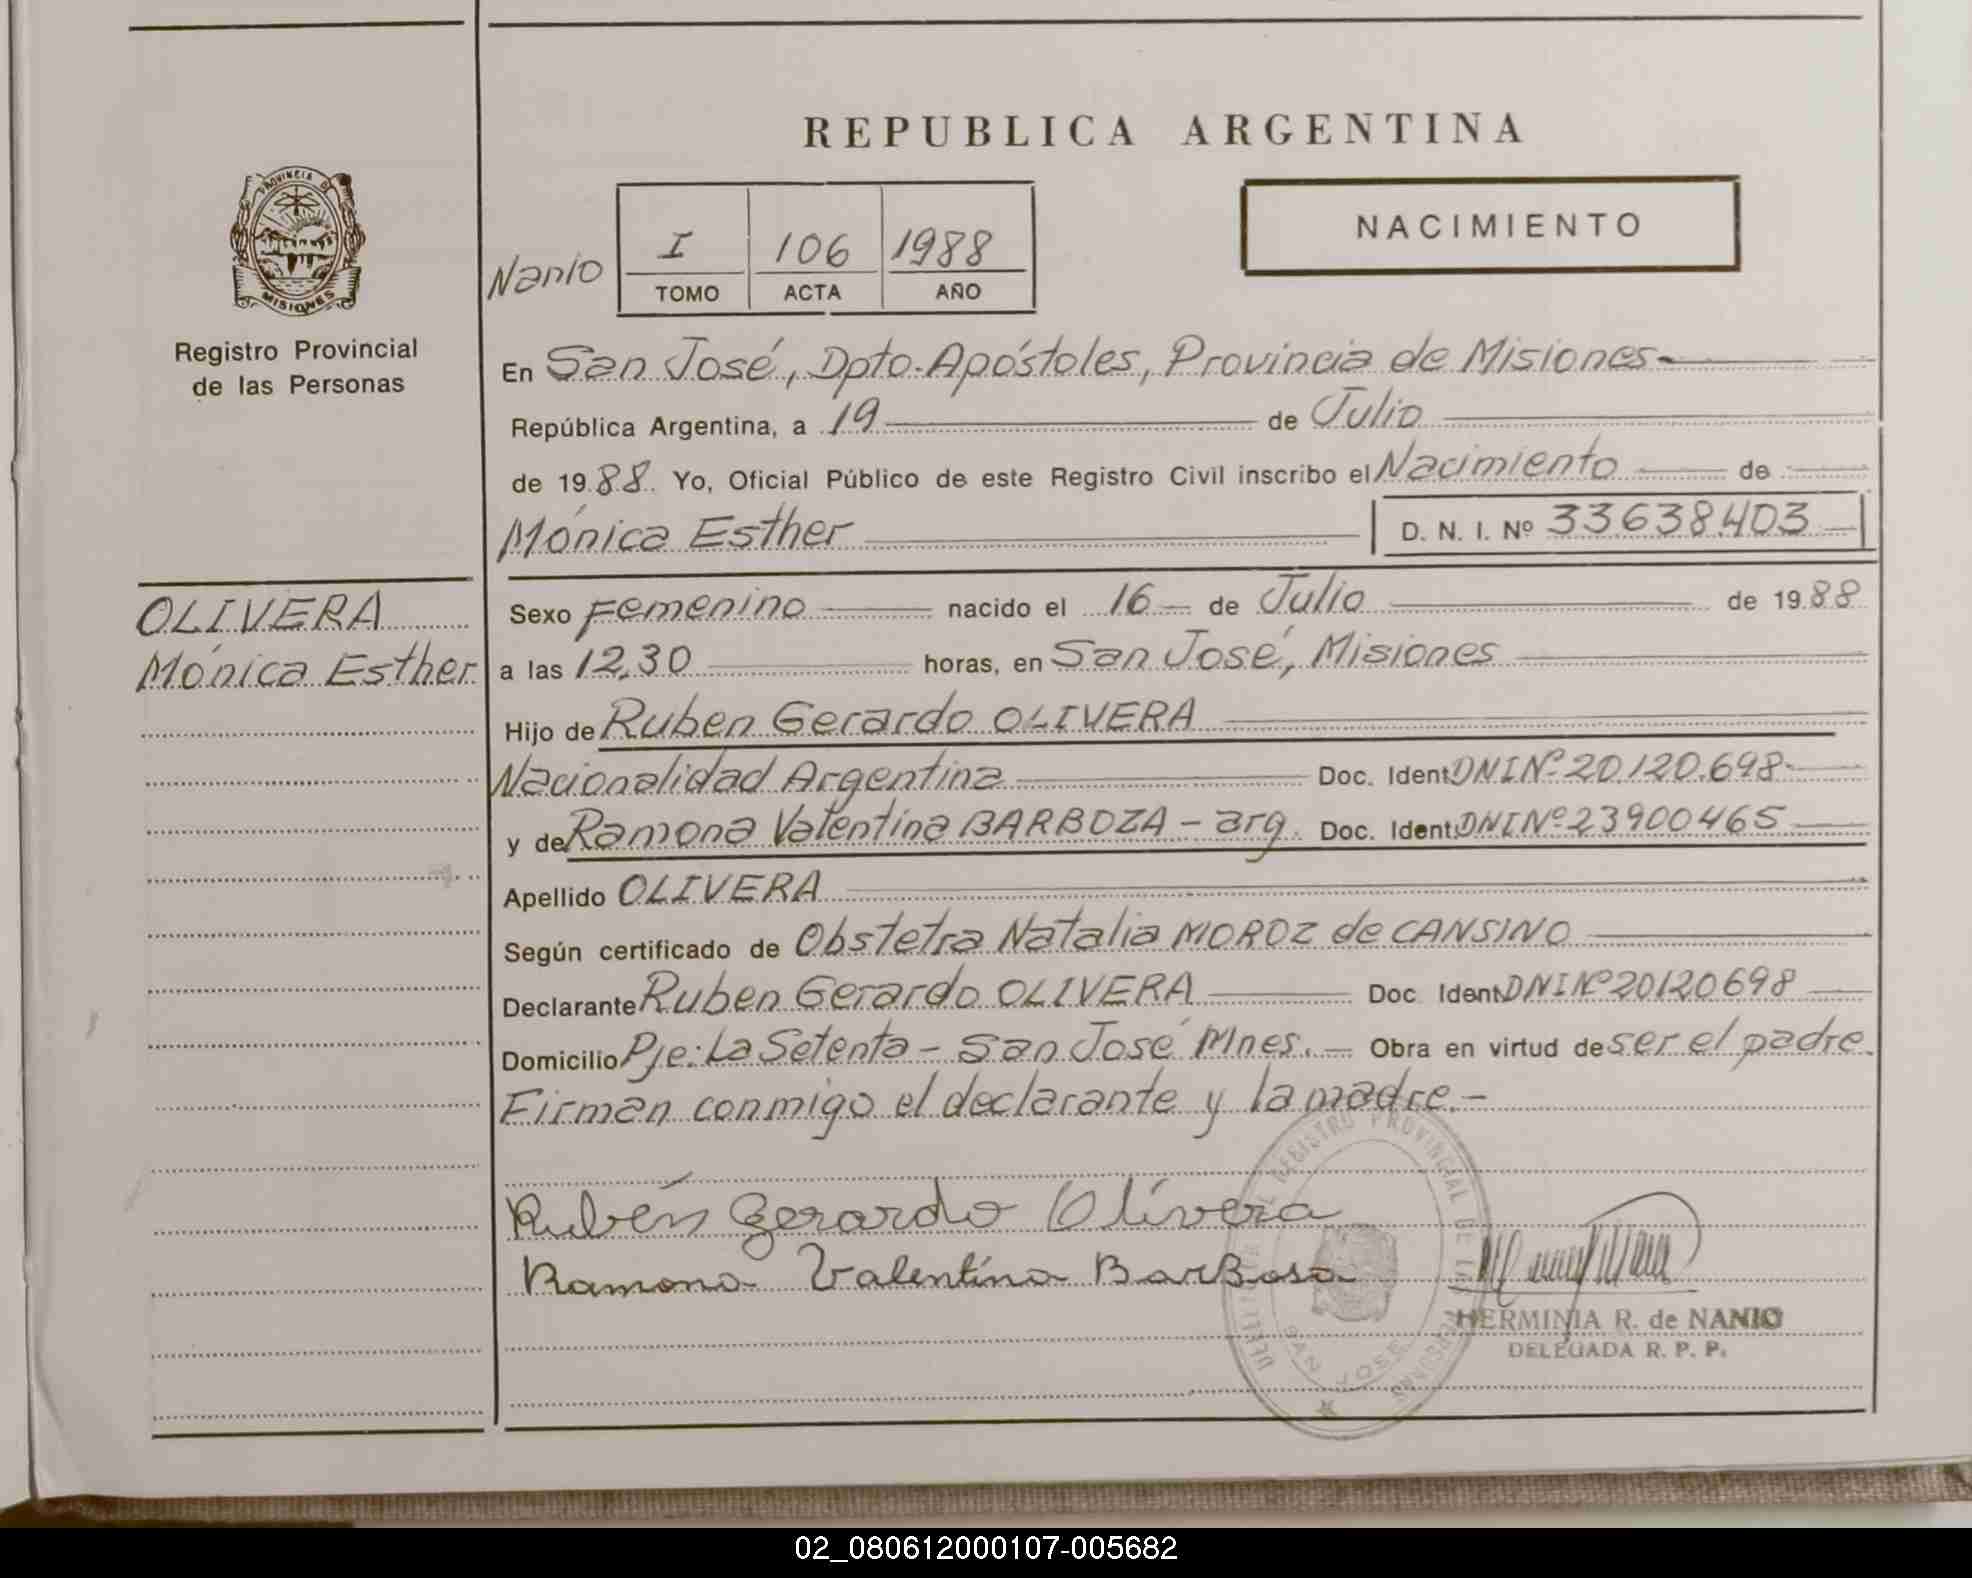 REPUBLICA ARGENTINA
PROVINCIA DE
MISIONES
Registro Provincial
de las Personas
Nanio
I 106 1988
TOMO ACTA AÑO
NACIMIENTO
En San José, Dpto. Apóstoles, Provincia de Misiones-
República Argentina, a 19 de Julio
de 1988. Yo, Oficial Público de este Registro Civil inscribo el Nacimiento de
Mónica Esther D. N. I. Nº 33638.403
OLIVERA
Mónica Esther
Sexo Femenino nacido el 16 de Julio de 1988
a las 12,30 horas, en San José, Misiones
Hijo de Ruben Gerardo OLIVERA
Nacionalidad Argentina Doc. Ident. DNI Nº 20.120.698-
y de Ramona Valentina BARBOZA - arg. Doc. Ident. DNI Nº 23900465
Apellido OLIVERA
Según certificado de Obstetra Natalia MOROZ de CANSINO
Declarante Ruben Gerardo OLIVERA Doc. Ident. DNI Nº 20120698
Domicilio Pje: La Setenta - San José Mnes. - Obra en virtud de ser el padre.
Firman conmigo el declarante y la madre.-
Rubén Gerardo Olivera
Ramona Valentina Barbosa
REGISTRO PROVINCIAL DE LAS PERSONAS
SAN JOSE
HERMINIA R. de NANIO
DELEGADA R. P. P.
02_080612000107-005682